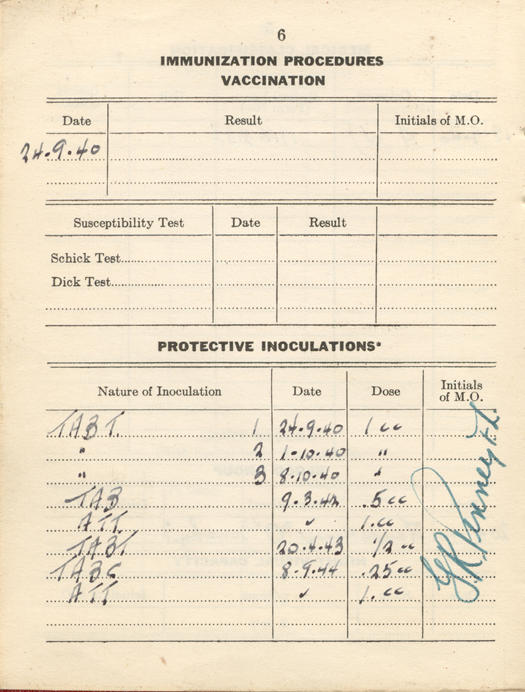 6
IMMUNIZATION PROCEDURES
VACCINATION
Date Result Initials of M.O.
24.9.40
Susceptibility Test Date Result
Schick Test
Dick Test
PROTECTIVE INOCULATIONS*
Nature of Inoculation Date Dose Initials of M.O.
TABT. 1 24.9.40 1 cc
" 2 1.10.40 "
" 3 8.10.40 "
TAB 9.3.42 .5 cc
ATT " 1.cc
TABT 20.4.43 1/2 cc
TABC 8.9.44 .25 cc
ATT " 1.cc